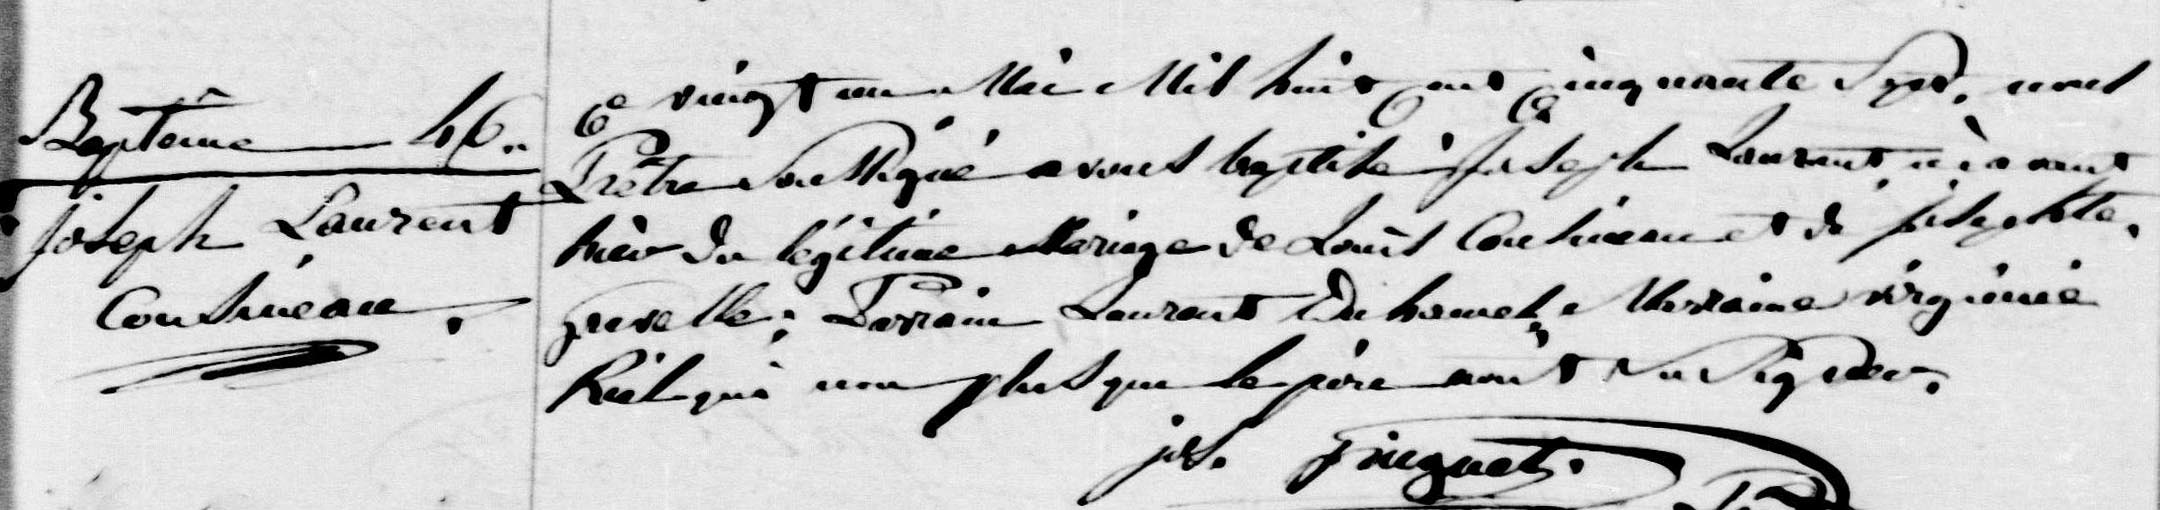 Baptême 46.
Joseph Laurent
Cousineau.
Ce vingt un Mai Mil huit Cent Cinquante Sept, nous
Prêtre Soussigné avons baptisé Joseph Laurent né avant
hier du légitime Mariage de Louis Cousineau et de
Parrain Laurent Duhamel, Marraine virginie
Riel qui non plus que le père n'ont su Signer.
jos.